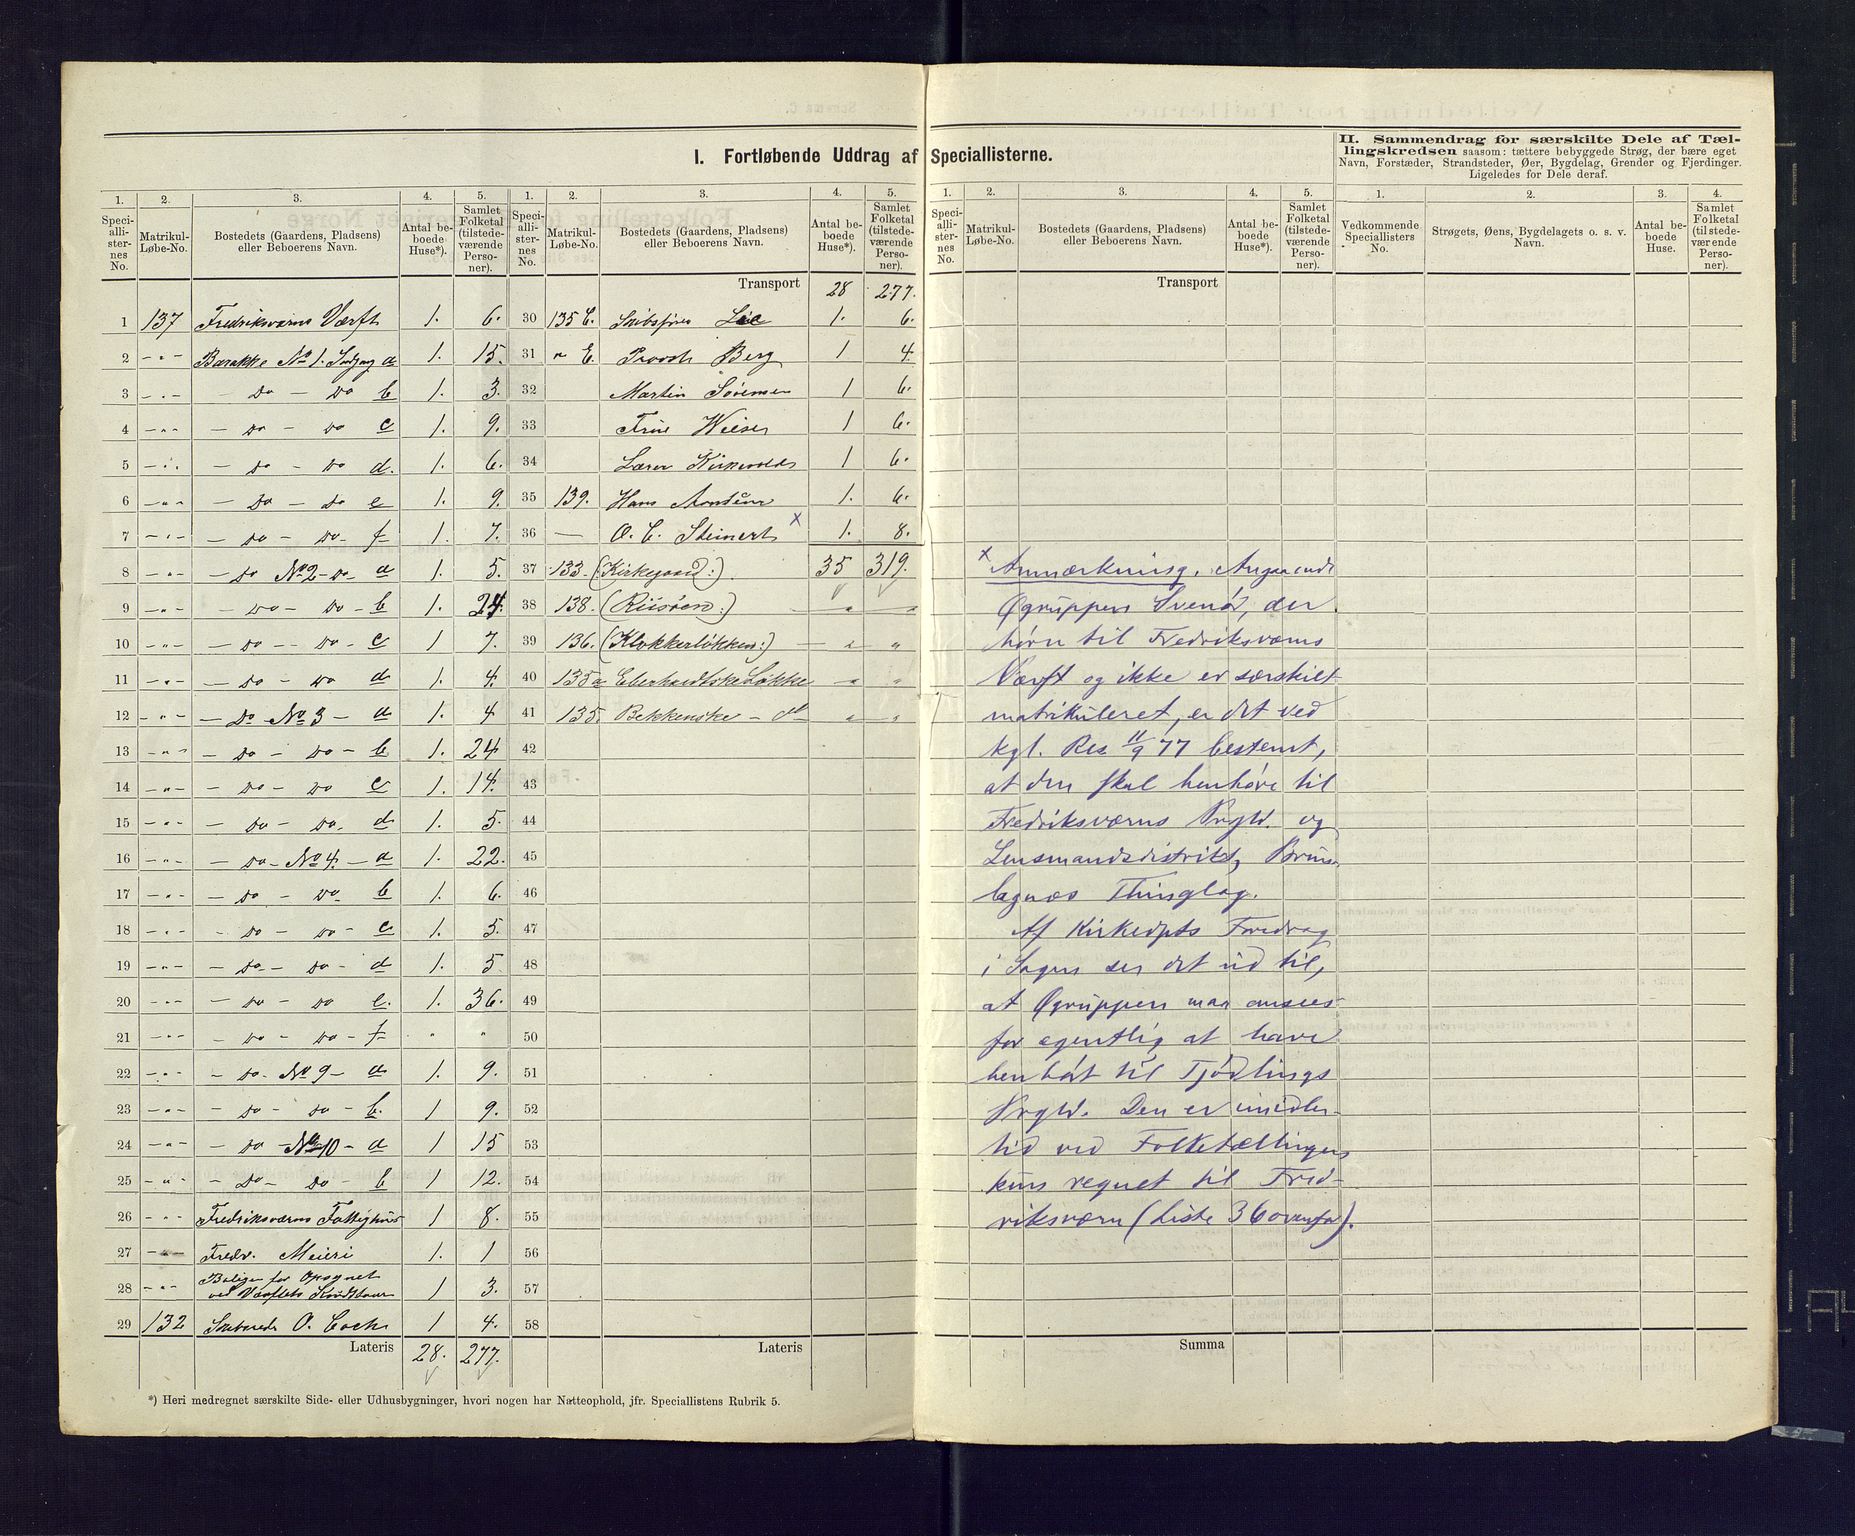 I. Fortløbende Uddrag af Speciallisterne.
II. Sammendrag for særskilte Dele af Tæl-
lingskredsen saasom: tættere bebyggede Strøg, der bære eget
Navn, Forstæder, Strandsteder, Øer, Bygdelag, Grender og Fjerdinger.
Ligeledes for Dele deraf.
1. 2. 3. 4. 5. 1. 2. 3. 4. 5. 1. 2. 3. 4. 5. 1. 2. 3. 4.
Speciallisternes No. Matrikul-Løbe-No. Bostedets (Gaardens, Pladsens) eller Beboerens Navn. Antal beboede Huse*). Samlet Folketal (tilstedeværende Personer).
Speciallisternes No. Matrikul-Løbe-No. Bostedets (Gaardens, Pladsens) eller Beboerens Navn. Antal beboede Huse*). Samlet Folketal (tilstedeværende Personer).
Speciallisternes No. Matrikul-Løbe-No. Bostedets (Gaardens, Pladsens) eller Beboerens Navn. Antal beboede Huse*). Samlet Folketal (tilstedeværende Personer).
Vedkommende Speciallisters No. Strøgets, Øens, Bygdelagets o. s. v. Navn. Antal beboede Huse. Samlet Folketal (tilstedeværende Personer).
1 137 Fredriksværns Værft 1. 6.
2 -"- Barakke No 1. Indgang a 1. 15.
3 -"- - Do - Do b 1. 3.
4 -"- - Do - Do c 1. 9.
5 -"- - Do - Do d. 1. 6.
6 -"- - Do - Do e 1. 9.
7 -"- - Do - Do - f 1. 7.
8 -"- - Do No 2 - Do - a 1. 5.
9 -"- - Do - Do - b 1. 24.
10 -"- - Do - Do - c 1 7.
11 -"- - Do - Do d 1. 4.
12 -"- - Do - No 3 - a 1. 4
13 -"- - Do - Do - b 1. 24
14 -"- - Do - Do c 1. 14.
15 -"- - Do - Do. d 1. 5.
16 -"- - Do - No 4. - a 1. 22.
17 -"- - Do - Do. b 1. 6.
18 -"- - Do - Do - c 1. 5.
19 -"- - Do - Do - d 1. 5
20 -"- - Do - Do e. 1. 36.
21 -"- - Do - Do - f " "
22 -"- - Do - No 9 - a 1. 9.
23 -"- - Do - Do - b. 1 9.
24 -"- - Do No 10 - a 1 15
25 -"- - Do - Do - b 1 12.
26 -"- Fredriksværns Fattighus 1 8.
27 -"- Fredv. Meieri 1. 1
28 -"- Boliger for Opsynet
ved Værftets Krudttaar 1 3.
29 132 O. Cock 1 4.
Lateris 28. 277.
Transport 28 277.
30 135 C. Skibsfører Lie 1. 6.
31 " E. Provst Berg 1 4.
32 Martin Sørensen 1 6.
33 Frue Wiese 1 6.
34 Lærer Kirkevolds 1 6.
35 139. Hans 1. 6.
36 — O. C. Steinert x 1. 8.
35 319.
37 133. (Kirkegaard:)
38 138. (Riisøen:) " "
39 136. (Klokkerløkken:) " "
40 135a Eberhardtske Løkke " "
41 135. Bekkenske - dt " "
42
43
44
45
46
47
48
49
50
51
52
53
54
55
56
57
58
Lateris
Transport
x Anmærkning. Angaaende
Øgruppen Svenør, der
hører til Fredriksværns
Værft og ikke er særskilt
matrikuleret, er det ved
kgl. Res. 11/9 77 bestemt,
at den skal henhøre til
Fredriksværns Prgld. og
Lensmandsdistrikt, Brun-
lagnæs Thinglag.
Af Kirkedpts Foredrag
i Sagen ser det ud til,
at Øgruppen maa ansees
for egentlig at have
henhørt til Tjødlings
Prgld. Den er imidler-
tid ved Folketællingen
kun regnet til Fred-
riksværn (Liste 36 ovenfor).
Summa
*) Heri medregnet særskilte Side- eller Udhusbygninger, hvori nogen har Natteophold, jfr. Speciallistens Rubrik 5.